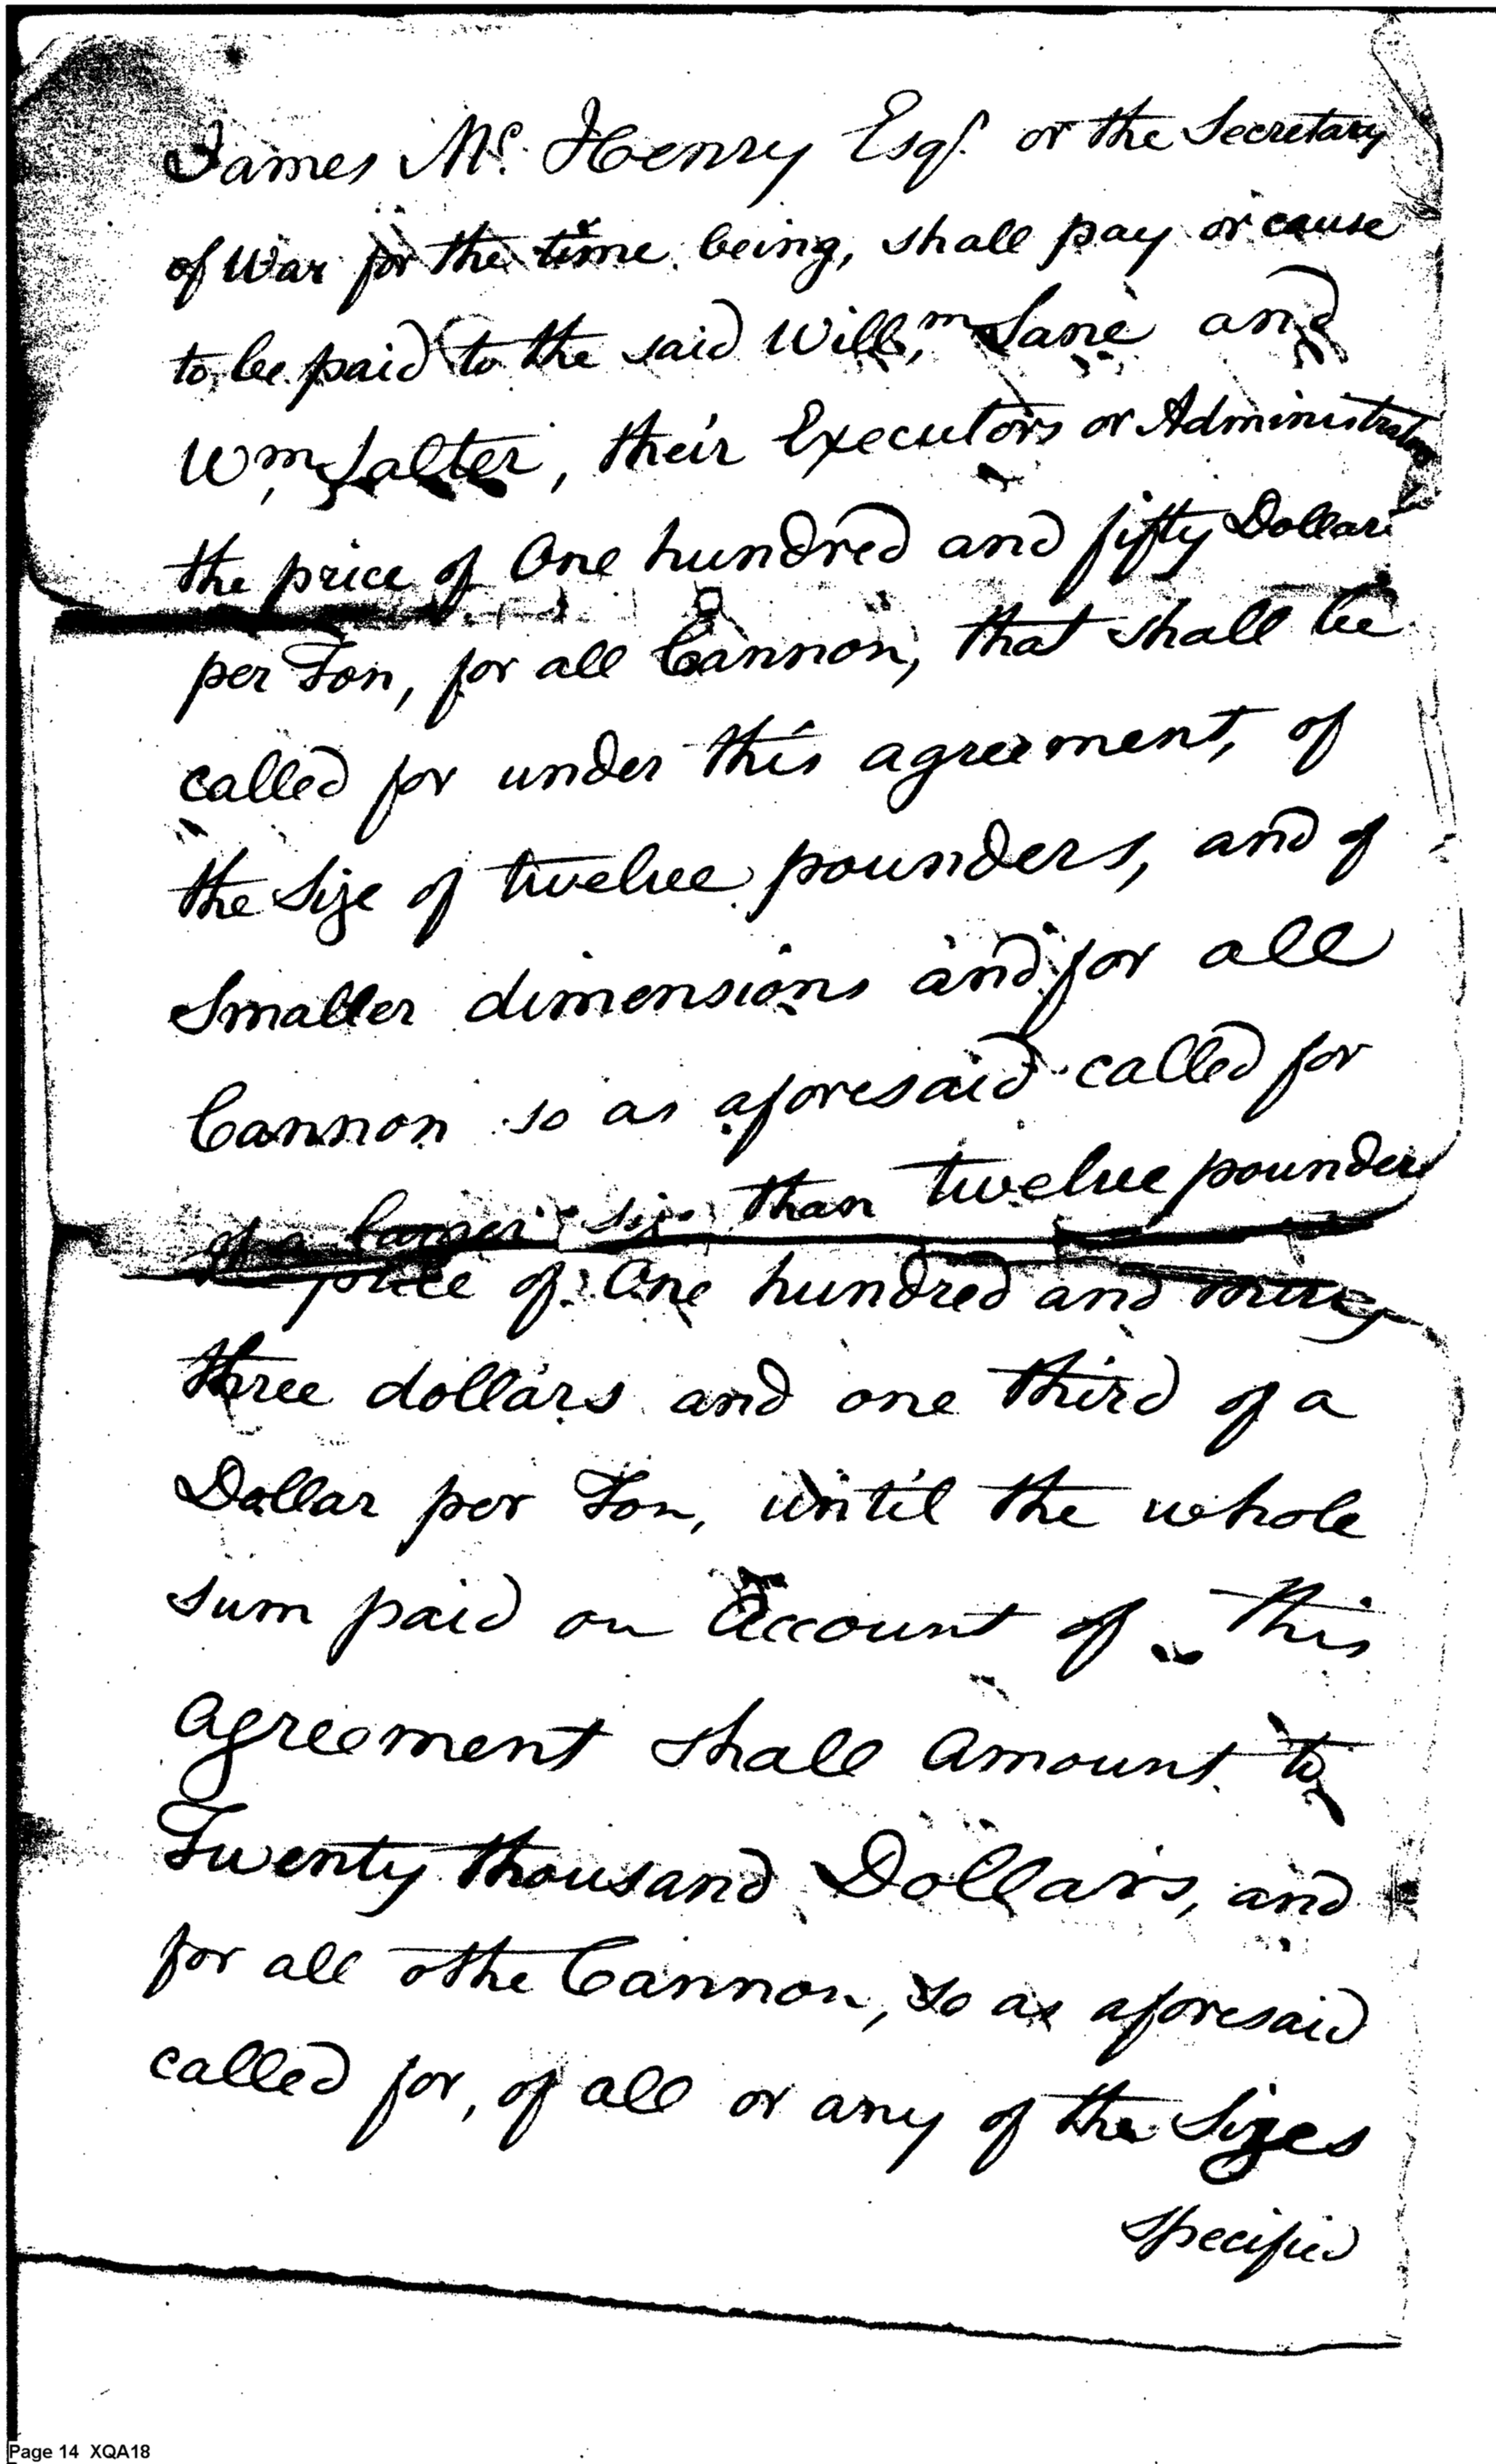 James Mc. Henry Esqr. or the Secretary
of War for the time being, shall pay or cause
to be paid to the said Willm. Lane and
Wm. Salter, their Executors or Administrators
the price of One hundred and fifty Dollars
per Ton, for all Cannon, that shall be
called for under this agreement, of
the Size of twelve pounders, and of
Smaller dimensions and for all
Cannon so as aforesaid called for
of a larger size than twelve pounders
the price of One hundred and
three dollars and one third of a
Dollar per Ton, until the whole
sum paid on Account of this
agreement shall amount to
Twenty thousand Dollars, and
for all othe Cannon, so as aforesaid
called for, of all or any of the Sizes
specified
Page 14 XQA18